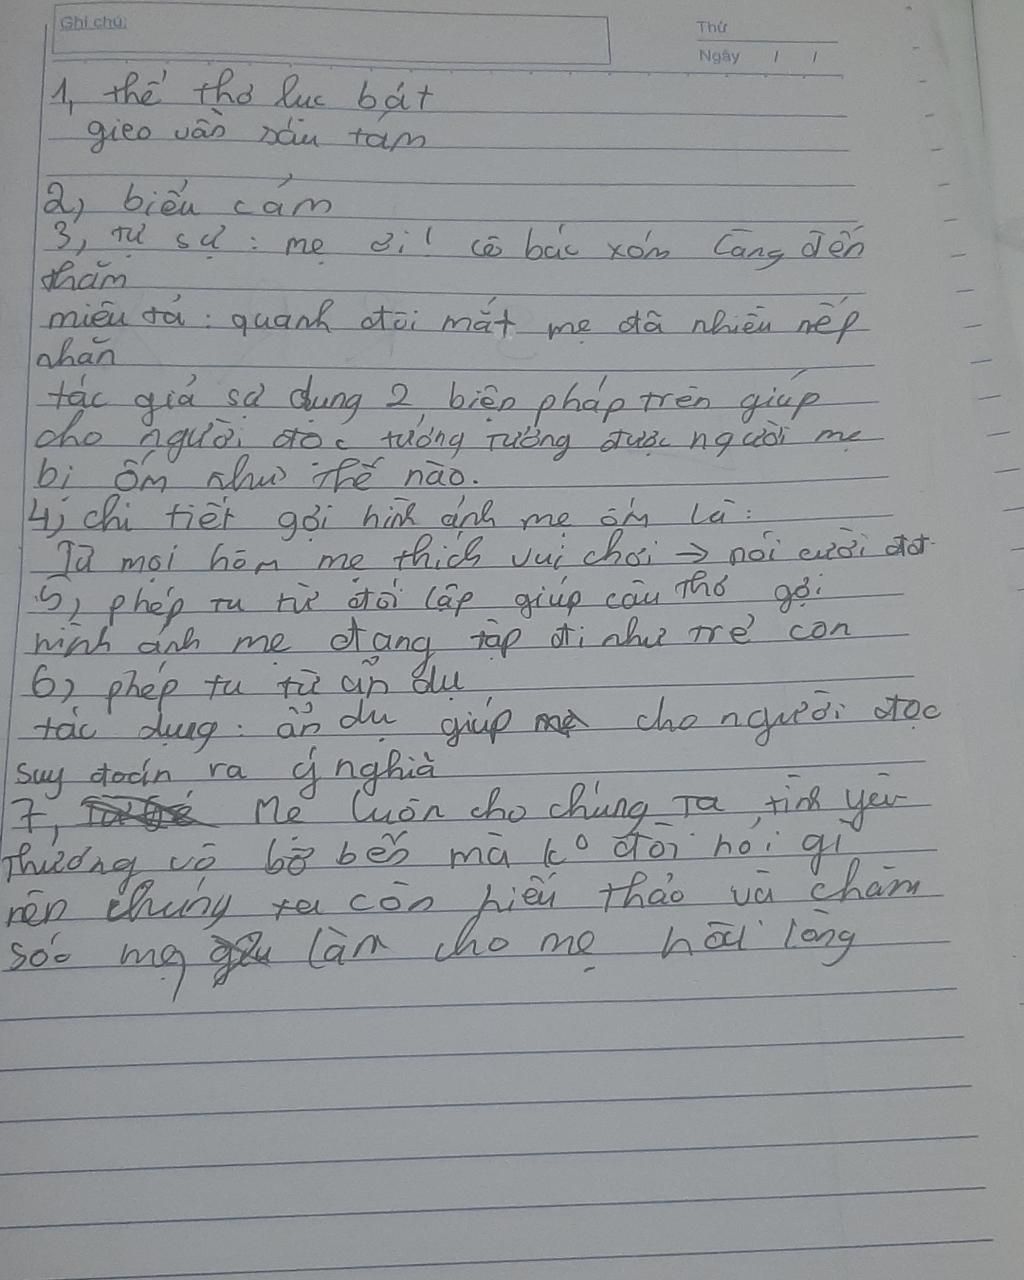 Ghi chú:
Thứ
Ngày / /
1, thể thơ lục bát
gieo vần sáu tam
2, biểu cảm
3, tự sự : mẹ ơi! cô bác xóm làng đến
thăm
miêu tả : quanh đôi mắt mẹ đã nhiều nếp
nhăn
tác giả sử dụng 2 biện pháp trên giúp
cho người đọc tưởng tượng được người mẹ
bị ốm như thế nào.
4, chi tiết gợi hình ảnh mẹ ốm là :
Từ mọi hôm mẹ thích vui chơi → nói cười đợt
5, phép tu từ đối lập giúp câu thơ gợi
hình ảnh mẹ đang tập đi như trẻ con
6, phép tu từ ẩn dụ
tác dụng : ẩn dụ giúp cho người đọc
suy đoán ra ý nghĩa
7, Mẹ luôn cho chúng ta tình yêu
thương vô bờ bến mà ko đòi hỏi gì
nên chúng ta cần hiếu thảo và chăm
sóc mẹ làm cho mẹ hài lòng